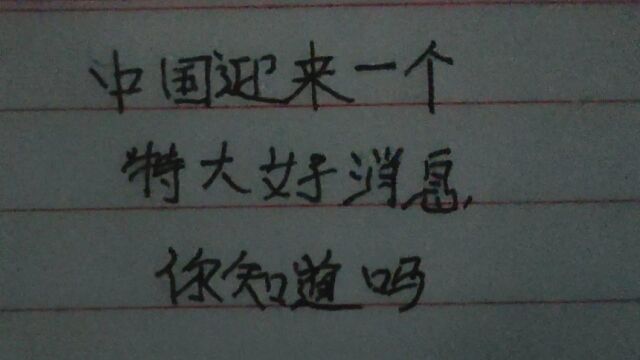 中国迎来一个
特大好消息
你知道吗